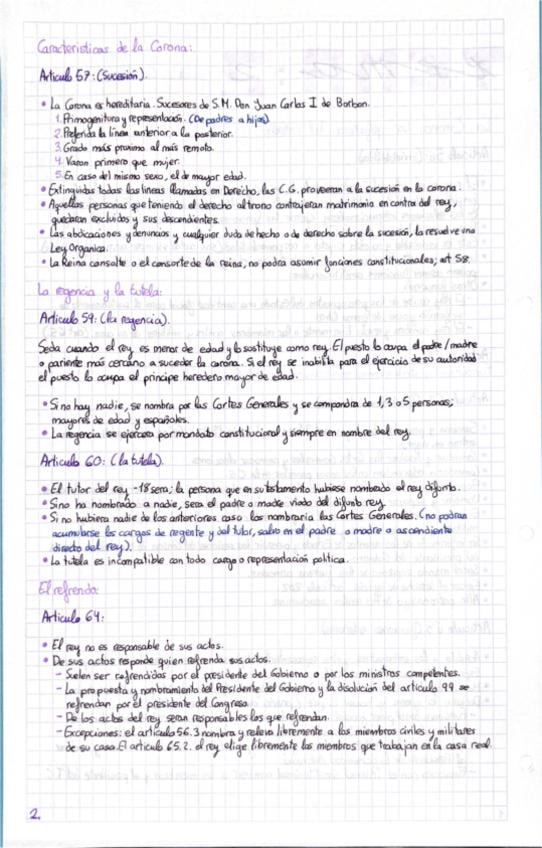 Caracteristicas de la Corona:
Articulo 57: (Sucesión).
• La Corona es hereditaria. Sucesores de S.M. Don Juan Carlos I de Borbon.
1. Primogenitura y representación. (De padres a hijos)
2. Preferida la linea anterior a la posterior.
3. Grado más proximo al más remoto.
4. Varon primero que mujer.
5. En caso del mismo sexo, el de mayor edad.
• Extinguidas todas las lineas llamadas en Derecho, las C.G. proveeran a la sucesión en la corona.
• Aquellas personas que teniendo el derecho al trono contrajeran matrimonio en contra del rey,
quedaran excluidos y sus descendientes.
• Las abdicaciones y denuncias y cualquier duda de hecho o de derecho sobre la sucesión, la resuelve una
Ley Organica.
• La Reina consolte o el consorte de la reina, no podra asumir funciones constitucionales; art 58.
La regencia y la tutela:
Articulo 59: (la regencia).
Se da cuando el rey es menor de edad y lo sustituye como rey. El puesto lo ocupa el padre/madre
o pariente más cercano a suceder la corona. Si el rey se inabilita para el ejercicio de su autoridad
el puesto lo ocupa el principe heredero mayor de edad.
• Si no hay nadie, se nombra por las Cortes Generales y se compondra de 1, 3 o 5 personas;
mayores de edad y españoles.
• La regencia se ejercera por mandato constitucional y siempre en nombre del rey.
Articulo 60: (la tutela).
• El tutor del rey -18 sera; la persona que en su testamento hubiese nombrado el rey difunto.
• Si no ha nombrado a nadie, sera el padre o madre viudo del difunto rey.
• Si no hubiera nadie de los anteriores caso los nombraria las Cortes Generales. (no podran
acumularse los cargos de regente y del tutor, salvo en el padre o madre o ascendiente
directo del rey).
• La tutela es incompatible con todo cargo o representación politica.
El refrendo:
Articulo 64:
• El rey no es responsable de sus actos.
• De sus actos responde quien refrenda sus actos.
- Suelen ser refrendidas por el presidente del Gobierno o por los ministros competentes.
- La propuesta y nombramiento del Presidente del Gobierno y la disolución del articulo 99 se
refrendan por el presidente del Congreso.
- De los actos del rey seran responsables los que refrendan.
- Excepciones: el articulo 56.3 nombra y releva libremente a los miembros civiles y militares
de su casa. El articulo 65.2. el rey elige libremente los miembros que trabajan en la casa real.
2.